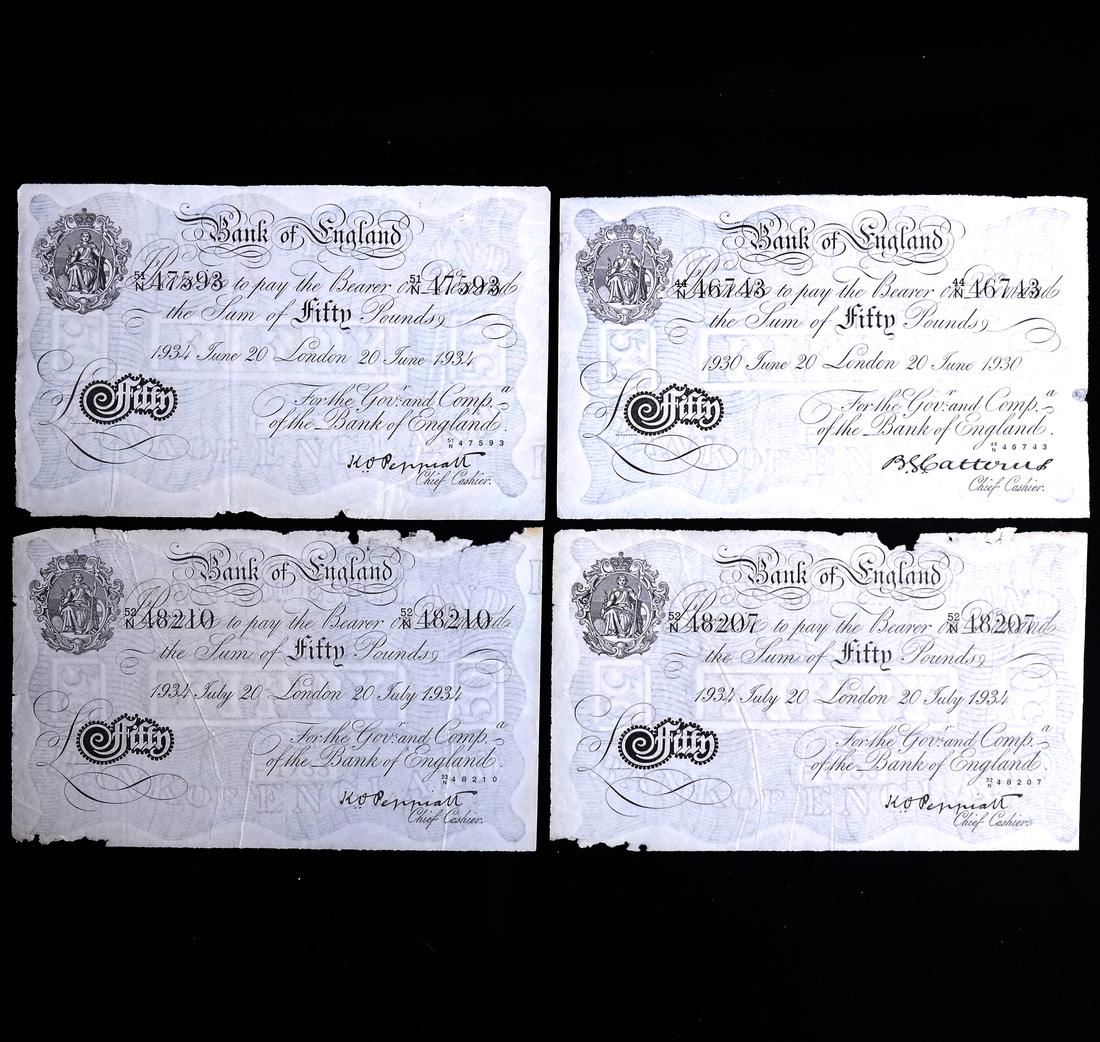 Bank of England
51/N 47593 to pay the Bearer on Demand 51/N 47593
the Sum of Fifty Pounds
1934 June 20 London 20 June 1934
£ Fifty
For the Govr. and Compa.
of the Bank of England.
51/N 47593
K O Peppiatt
Chief Cashier.
Bank of England
44/N 46743 to pay the Bearer on Demand 44/N 46743
the Sum of Fifty Pounds
1930 June 20 London 20 June 1930
£ Fifty
For the Govr. and Compa.
of the Bank of England.
44/N 46743
B G Catterns
Chief Cashier.
Bank of England
52/N 48210 to pay the Bearer on Demand 52/N 48210
the Sum of Fifty Pounds
1934 July 20 London 20 July 1934
£ Fifty
For the Govr. and Compa.
of the Bank of England.
52/N 48210
K O Peppiatt
Chief Cashier.
Bank of England
52/N 48207 to pay the Bearer on Demand 52/N 48207
the Sum of Fifty Pounds
1934 July 20 London 20 July 1934
£ Fifty
For the Govr. and Compa.
of the Bank of England.
52/N 48207
K O Peppiatt
Chief Cashier.